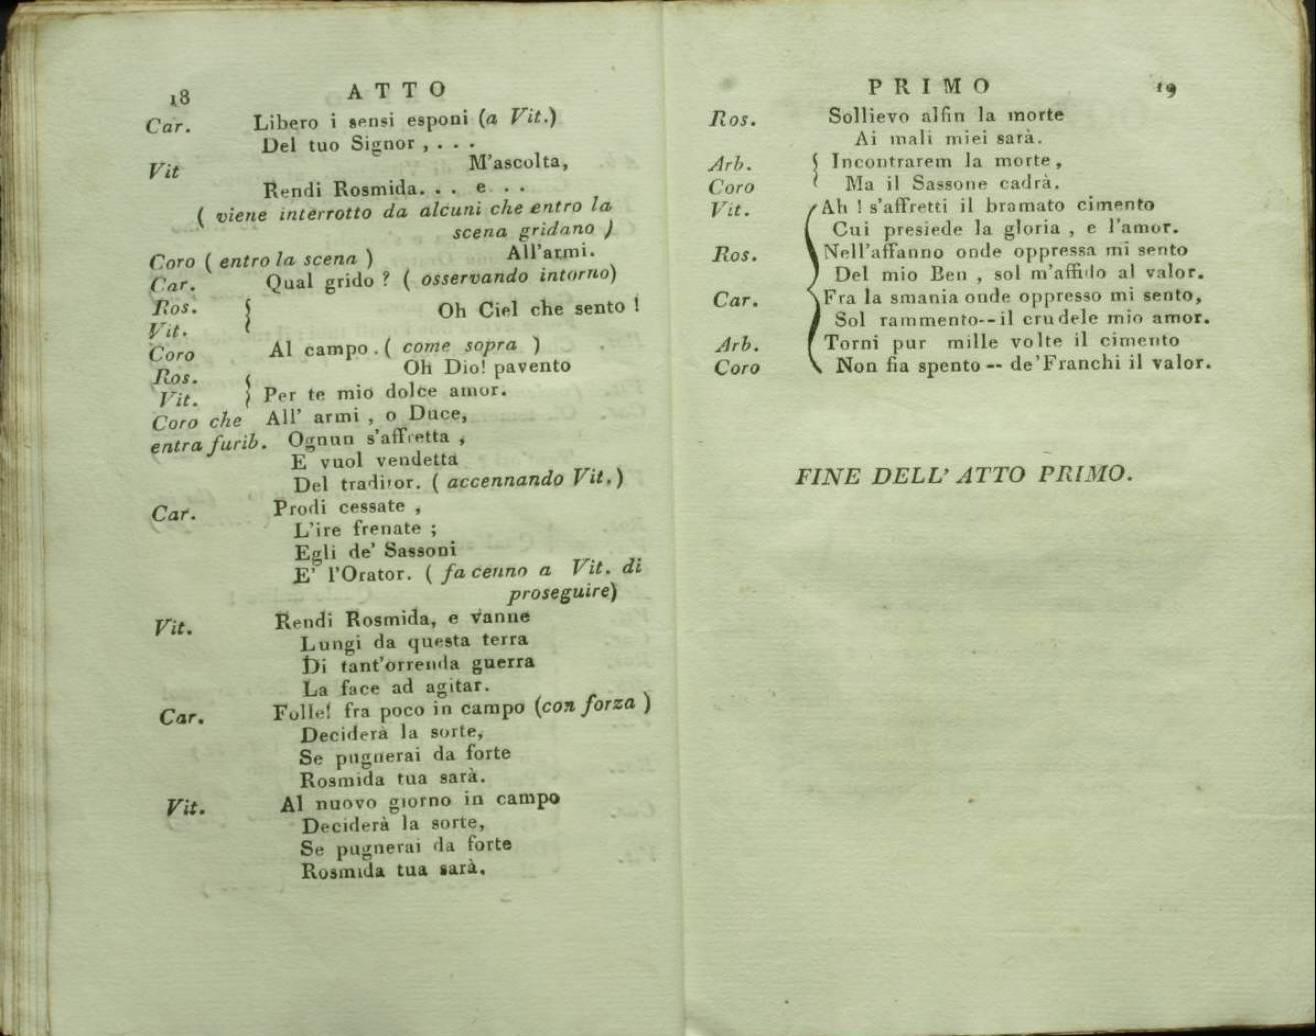 18 ATTO
Car. Libero i sensi esponi (a Vit.)
Del tuo Signor , . . .
Vit M'ascolta,
Rendi Rosmida. . . e . .
( viene interrotto da alcuni che entro la
scena gridano )
Coro ( entro la scena ) All'armi.
Car. Qual grido ? ( osservando intorno)
Ros. {
Vit. Oh Ciel che sento !
Coro Al campo . ( come sopra )
Ros. { Oh Dio! pavento
Vit. Per te mio dolce amor.
Coro che All' armi , o Duce,
entra furib. Ognun s'affretta ,
E vuol vendetta
Del traditor. ( accennando Vit. )
Car. Prodi cessate ,
L'ire frenate ;
Egli de' Sassoni
E' l'Orator. ( fa cenno a Vit. di
proseguire)
Vit. Rendi Rosmida, e vanne
Lungi da questa terra
Di tant'orrenda guerra
La face ad agitar.
Car. Folle! fra poco in campo (con forza )
Deciderà la sorte,
Se pugnerai da forte
Rosmida tua sarà.
Vit. Al nuovo giorno in campo
Deciderà la sorte,
Se pugnerai da forte
Rosmida tua sarà.
PRIMO 19
Ros. Sollievo alfin la morte
Ai mali miei sarà.
Arb. { Incontrarem la morte ,
Coro Ma il Sassone cadrà.
Vit. { Ah ! s'affretti il bramato cimento
Cui presiede la gloria , e l'amor.
Ros. Nell'affanno onde oppressa mi sento
Del mio Ben , sol m'affido al valor.
Car. Fra la smania onde oppresso mi sento,
Sol rammento--il crudele mio amor.
Arb. Torni pur mille volte il cimento
Coro Non fia spento -- de'Franchi il valor.
FINE DELL' ATTO PRIMO.